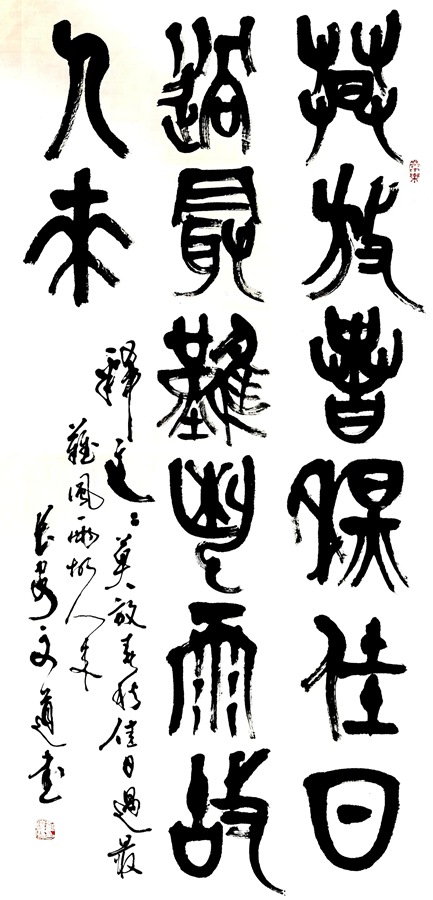 莫放春秋佳日
過最難風雨故
人來
釋文：莫放春秋佳日過最
難風雨故人來
文道書